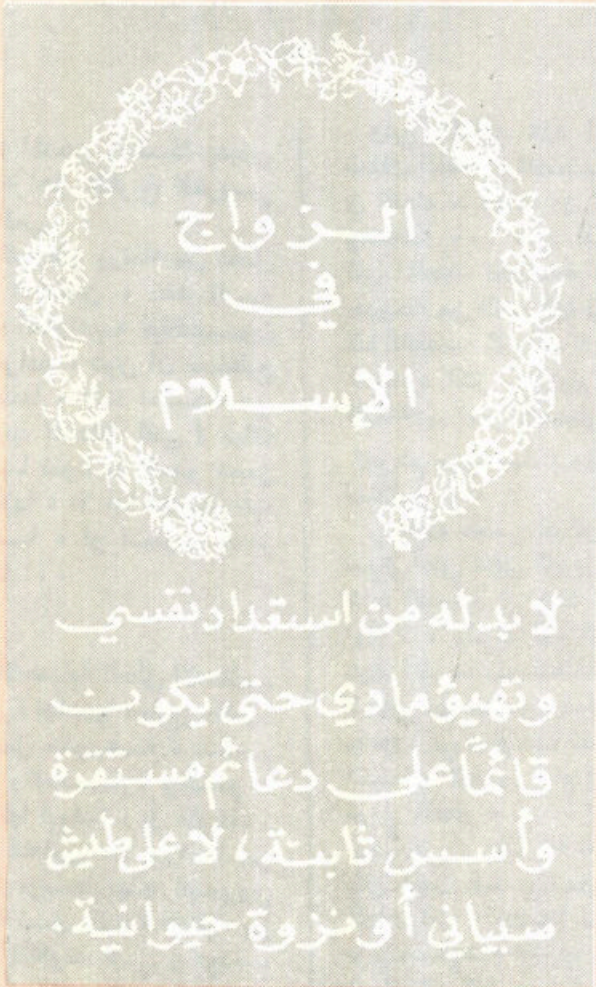 الزواج
في
الإسلام
لا بد له من استعداد نفسي
وتهيؤ مادي حتى يكون
قائماً على دعائم مستقرة
وأسس ثابتة، لا على طيش
صبياني أو نزوة حيوانية.